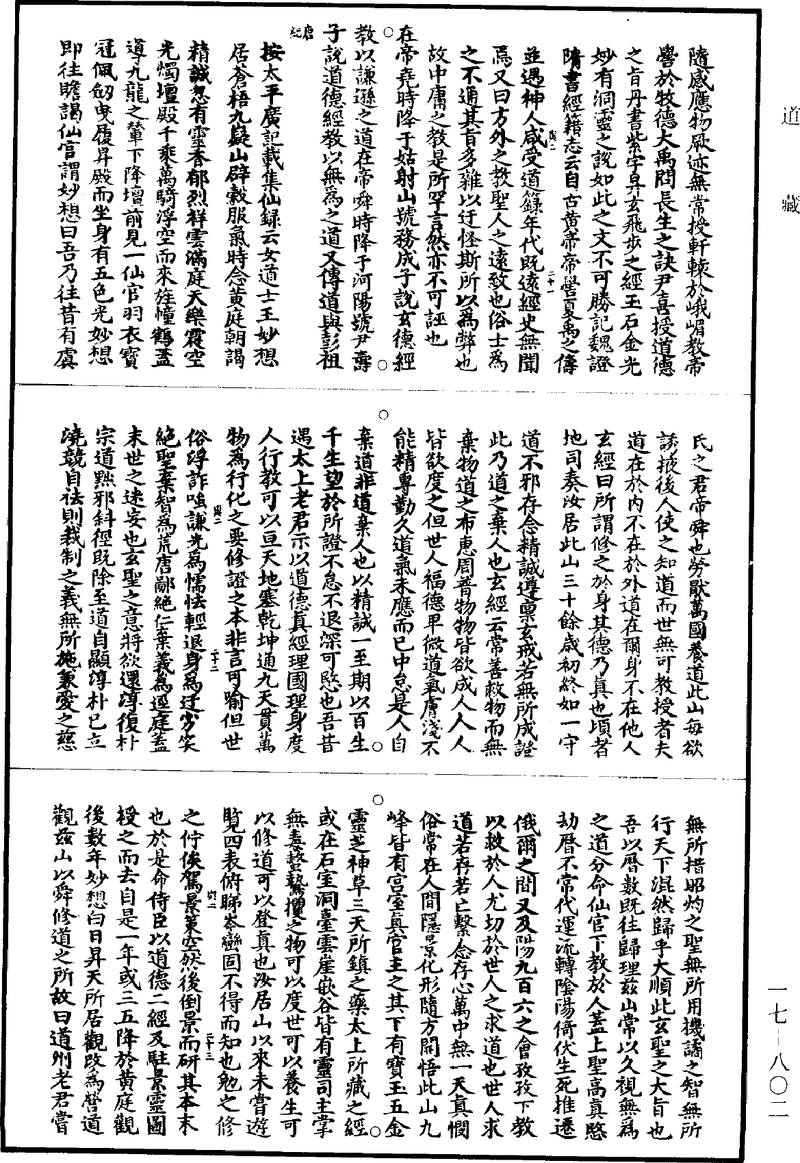 道藏
隨感應物厥迹無常授軒轅於峨嵋教帝
嚳於牧德大禹問長生之訣尹喜授道德
之旨丹書紫字昇玄飛步之經玉石金光
妙有洞靈之說如此之文不可勝記魏證
隋書經籍志云自古黃帝帝嚳夏禹之儔
並遇神人咸受道籙年代既遠經史無聞
焉又曰方外之教聖人之遠致也俗士為
之不通其旨多離以迂怪斯所以為弊也
故中庸之教是所罕言然亦不可誣也
在帝堯時降于姑射山號務成子說玄德經
教以謙遜之道在帝舜時降于河陽號尹壽
子說道德經教以無為之道又傳道與彭祖
按太平廣記載集仙録云女道士王妙想
居蒼梧九疑山辟穀服氣時念黃庭朝謁
精誠忽有靈香郁烈祥雲滿庭天樂震空
光燭壇殿千乘萬騎浮空而來旌幢鶴蓋
導九龍之輦下降壇前見一仙官羽衣寳
冠佩劒曳履昇殿而坐身有五色光妙想
即往瞻謁仙官謂妙想曰吾乃往昔有虞
氏之君帝舜也勞厭萬國養道此山每欲
誘掖後人使之知道而世無可教授者夫
道在於內不在於外道在爾身不在他人
玄經曰所謂修之於身其德乃真也頃者
地司奏汝居此山三十餘歲初終如一守
道不邪存念精誠遵禀玄戒若無所成證
此乃道之棄人也玄經云常善救物而無
棄物道之布惠周普物物皆欲成人人人
皆欲度之但世人福德卑微道氣膚淺不
能精專勤久道氣未應而已中怠是人自
棄道非道棄人也以精誠一至期以百生
千生望於所證不怠不退深可愍也吾昔
遇太上老君示以道德真經理國理身度
人行教可以亘天地塞乾坤通九天貫萬
物為行化之要修證之本非言可喻但世
俗浮詐嗤謙光為懦怯輕退身為迂劣笑
絕聖棄智為荒唐鄙絕仁棄義為逕庭蓋
末世之迷妄也玄聖之意將欲還淳復朴
宗道黜邪斜徑既除至道自顯淳朴已立
澆競自祛則裁制之義無所施兼愛之慈
無所措昭灼之聖無所用機譎之智無所
行天下混然歸乎大順此玄聖之大旨也
吾以曆數既往歸理茲山常以久視無為
之道分命仙官下教於人蓋上聖高真愍
劫曆不常代運流轉陰陽倚伏生死推遷
俄爾之間又及陽九百六之會孜孜下教
以救於人尤切於世人之求道也世人求
道若存若亡繫念存心萬中無一天真憫
俗常在人間隱景化形隨方開悟此山九
峰皆有宮室真官主之其下有寳玉五金
靈芝神草三天所鎮之藥太上所藏之經
或在石室洞臺雲崖嵌谷皆有靈司主掌
無毒螫鷙攫之物可以度世可以養生可
以修道可以登真也汝居山以來未嘗遊
覽四表俯睇岑巒固不得而知也勉之修
之佇俟駕景策空然後倒景而研其本末
也於是命侍臣以道德二經及駐景靈圖
授之而去自是一年或三五降於黃庭觀
後數年妙想白日昇天所居觀改為營道
觀茲山以舜修道之所故曰道州老君嘗
一七-八〇二